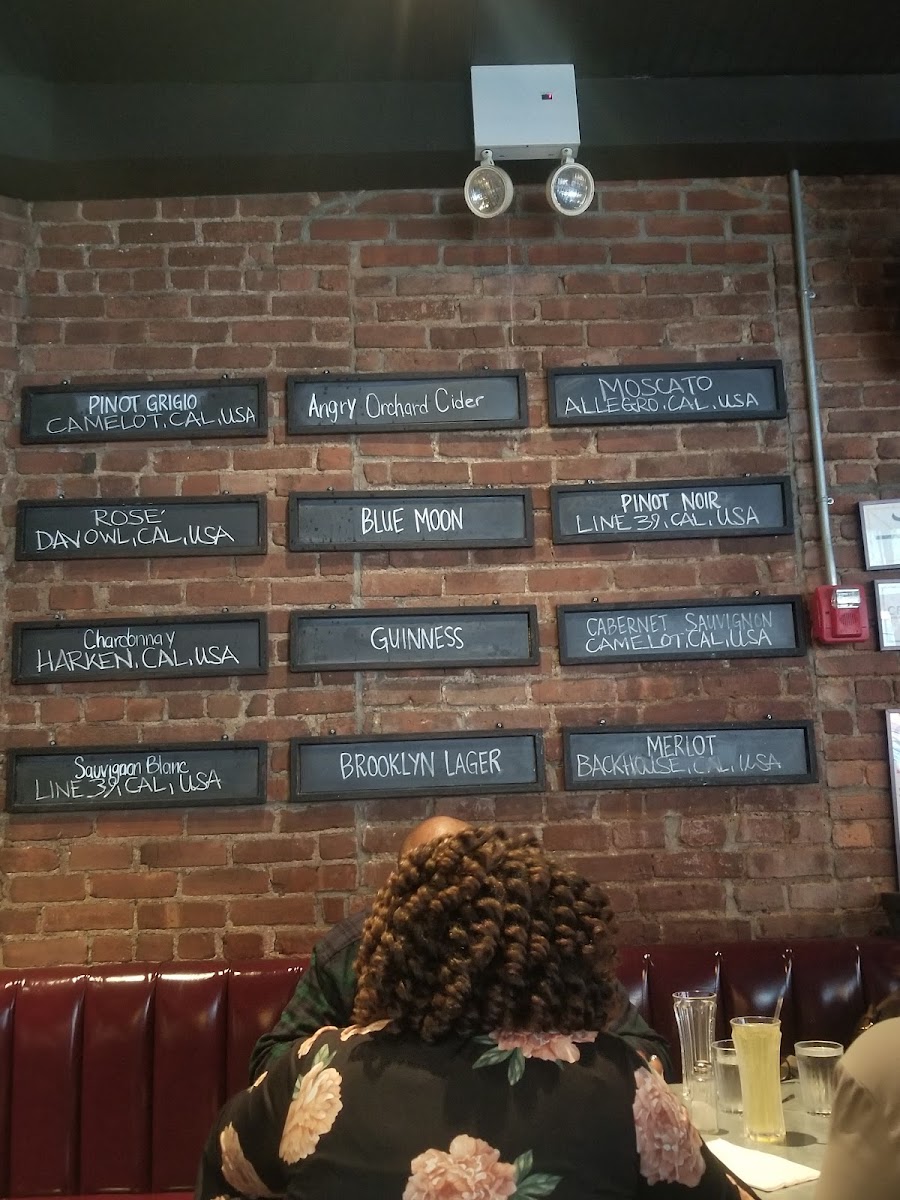 PINOT GRIGIO
CAMELOT, CAL, USA
Angry Orchard Cider
MOSCATO
ALLEGRO, CAL, USA
ROSÉ
DAY OWL, CAL, USA
BLUE MOON
PINOT NOIR
LINE 39, CAL, USA
Chardonnay
HARKEN, CAL, USA
GUINNESS
CABERNET SAUVIGNON
CAMELOT, CAL, USA
Sauvignon Blanc
LINE 39, CAL, USA
BROOKLYN LAGER
MERLOT
BACKHOUSE, CAL, USA